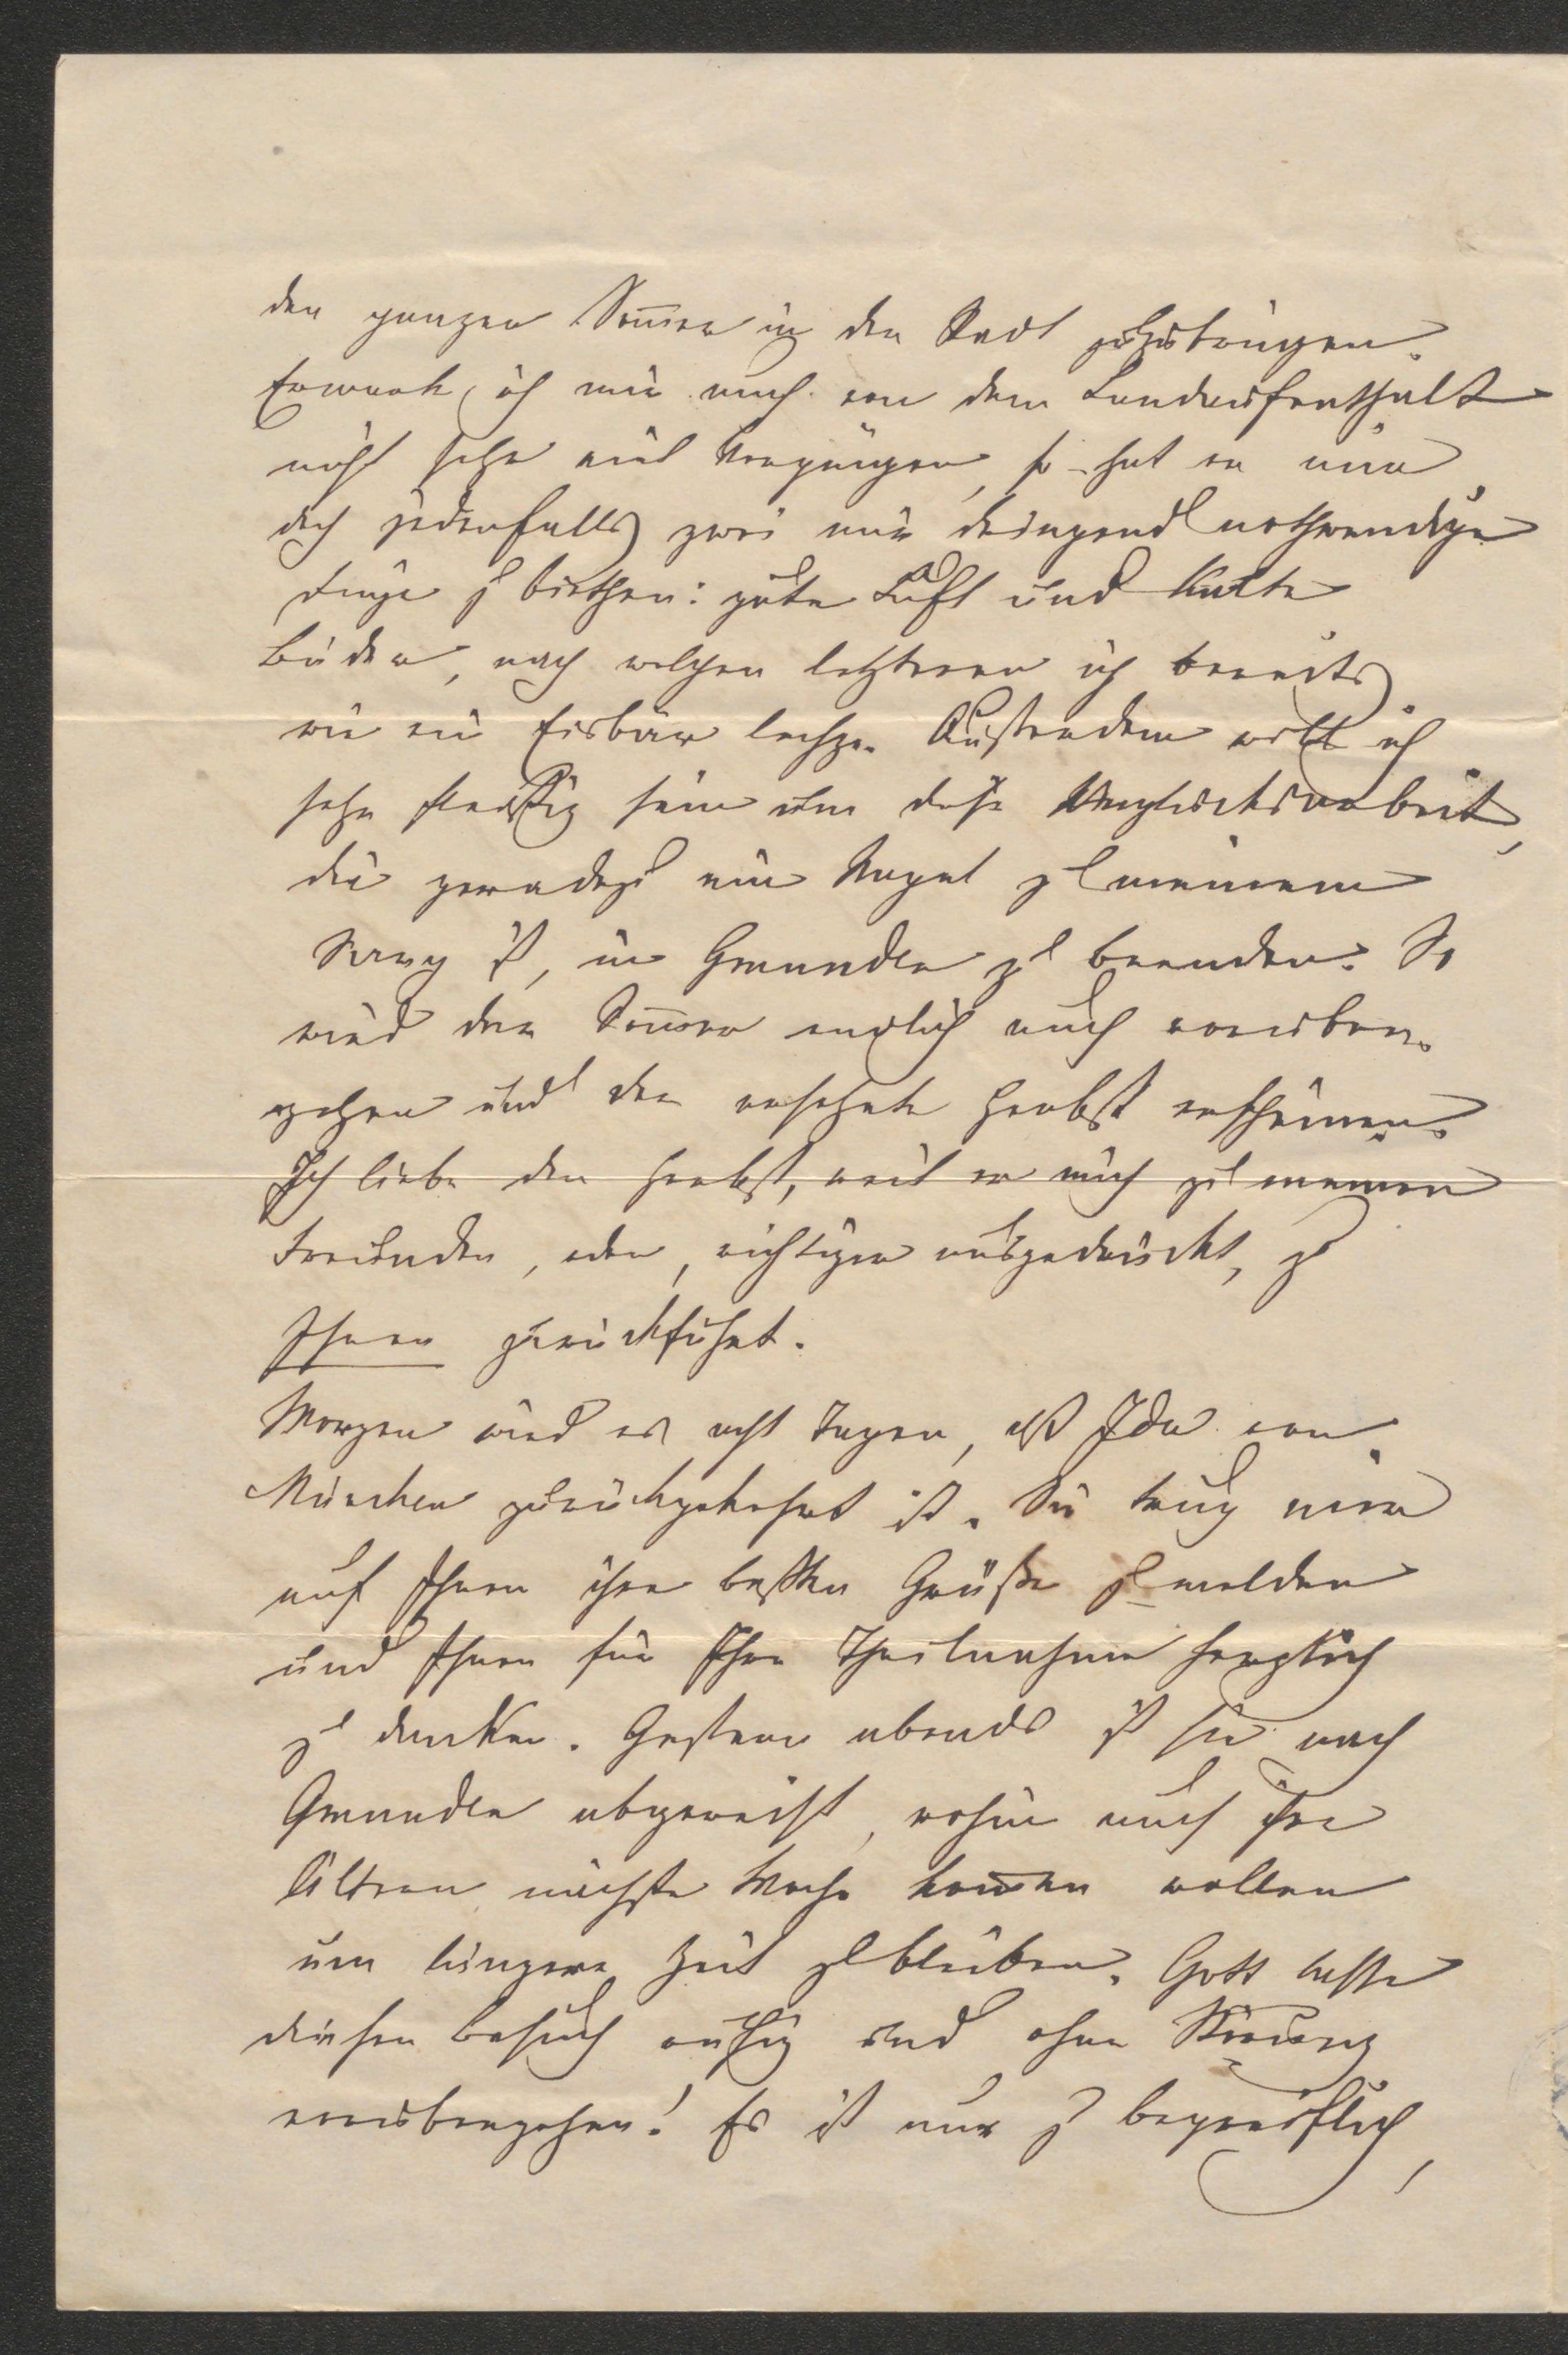 den ganzen Som̄er in der Stadt zuzubringen.
Erwarte ich mir auch von dem Landaufenthalt
nicht sehr viel Vergnügen, so hat er mir
doch jedenfalls zwei mir dringend nothwendige
Dinge zu biethen: gute Luft und kalte
Bäder, nach welchen letzteren ich bereits
wie ein Eisbär lechze. Außerdem will ich
sehr fleißig sein um diese Unglücksarbeit,
die geradezu ein Nagel zu meinem
Sarg ist, in Gmunden zu beenden. So
wird der Som̄er endlich auch vorüber
gehen und der ersehnte Herbst erscheinen.
Ich liebe den Herbst, weil er mich zu meinen
Freunden, oder, richtiger ausgedrückt, zu
Ihnen zurückführt.
Morgen wird es acht Tagen, daß Ida von
München zurückgekehrt ist. Sie trug mir
auf Ihnen ihre besten Grüße zu melden
und Ihnen für Ihre Theilnahme herzlich
zu danken. Gestern abends ist sie nach
Gmunden abgereist, wohin auch ihre
Ältern nächste Woche kom̄en wollen
um längere Zeit zu bleiben. Gott lasse
diesen Besuch ruhig und ohne Störung
vorübergehen! Es ist nur zu begreiflich,